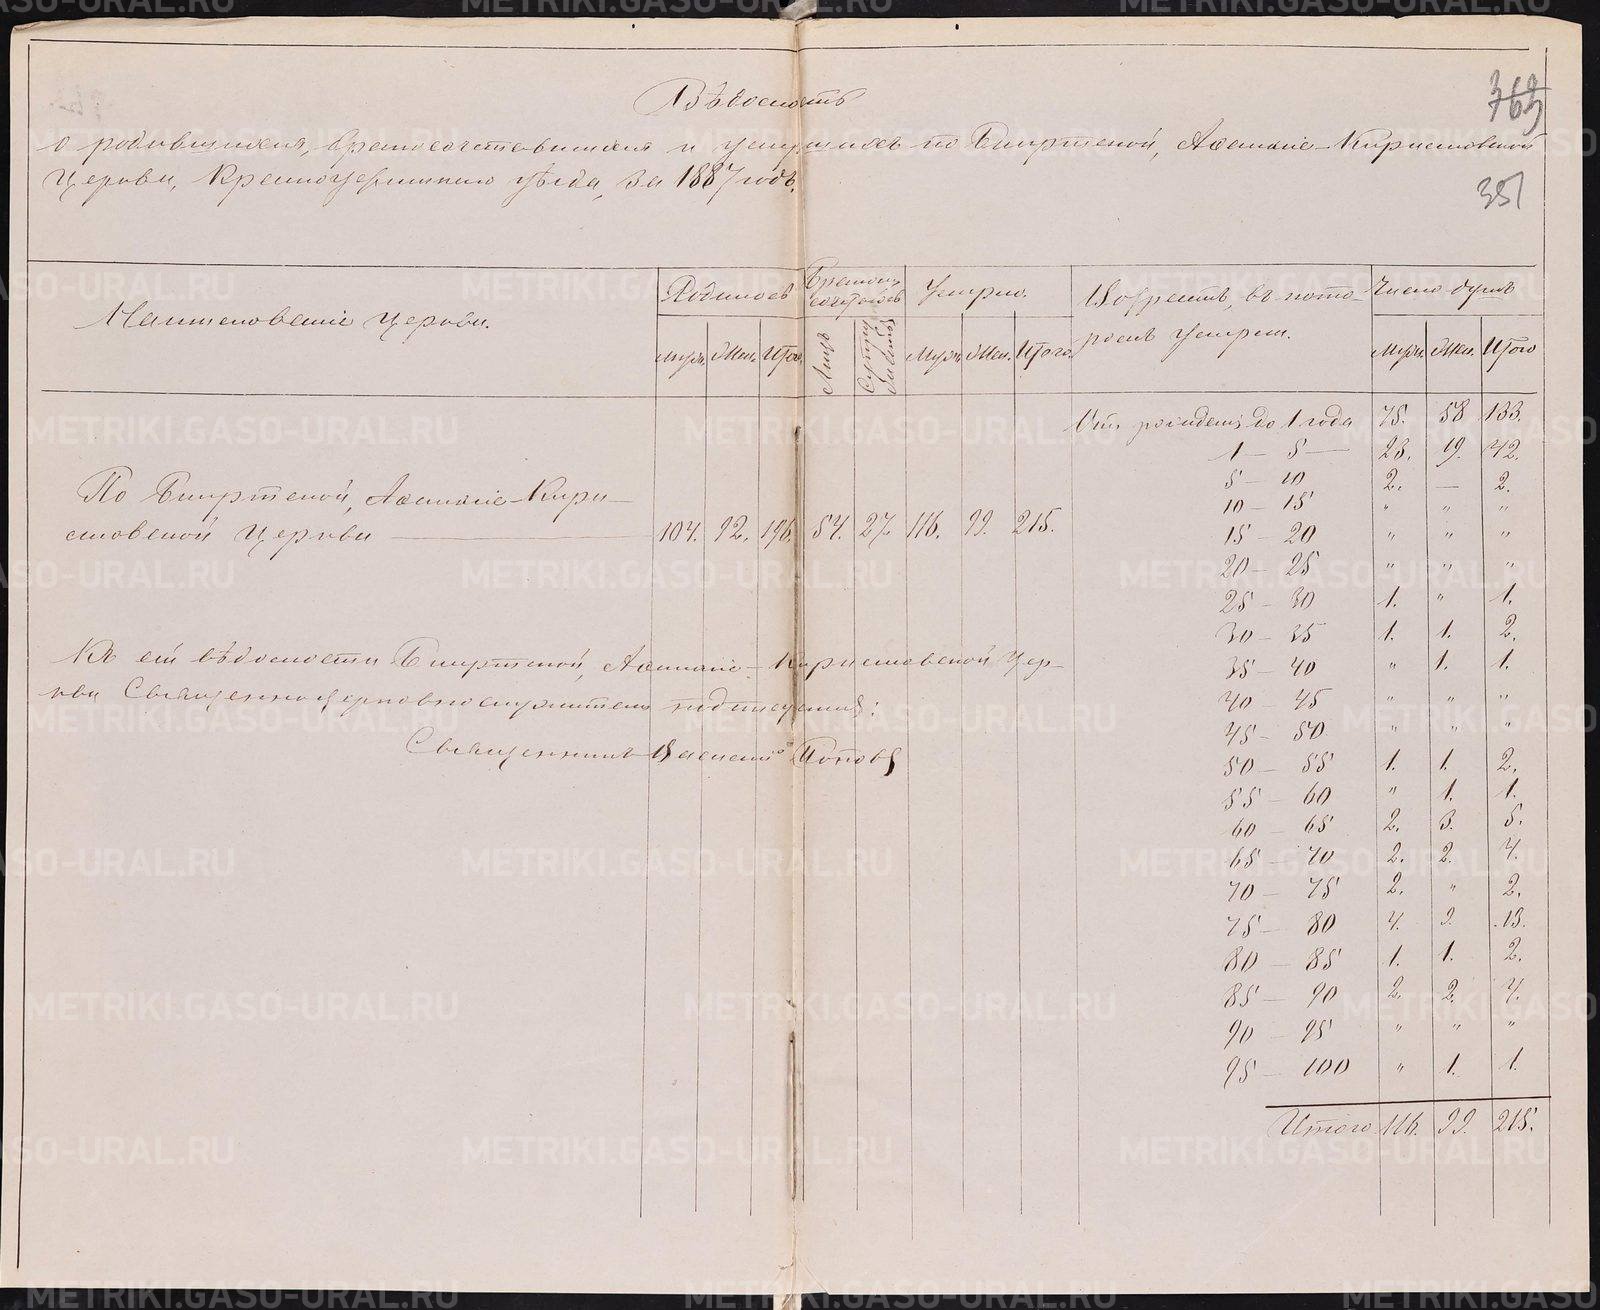 Вѣдомость
о родившихся, бракосочетавшихся и умершихъ по Бырткой, Аѳанасіе-Кирилловской
Церкви, Красноуфимскаго уѣзда, за 1887 годъ.
369
351
Наименованіе Церкви.
Родилось
Муж. Жен. Итого
Бракомъ сочеталось
Лицъ
Супружествъ
Умерло.
Муж. Жен. Итого.
Возрастъ, въ кото-
ромъ умерли.
Число душъ
Муж. Жен. Итого
По Бырткой, Аѳанасіе-Кири-
ловской Церкви 104. 92. 196. 54. 27. 116. 99. 215.
Отъ рожденія до 1 года 75. 58 133.
1 — 5 — 23. 19. 42.
5 — 10 2. — 2.
10 — 15 " " "
15 — 20 " " "
20 — 25 " " "
25 — 30 1. " 1.
30 — 35 1. 1. 2.
35 — 40 " 1. 1.
40 — 45 " " "
45 — 50 " " "
50 — 55 1. 1. 2.
55 — 60 " 1. 1.
60 — 65 2. 3. 5.
65 — 70 2. 2. 4.
70 — 75 2. " 2.
75 — 80 4. 9. 13.
80 — 85 1. 1. 2.
85 — 90 2. 2. 4.
90 — 95 " " "
95 — 100 " 1. 1.
Итого 116. 99. 215.
Къ сей вѣдомости Бырткой, Аѳанасіе-Кирилловской Цер-
кви Священноцерковнослужители подписуемся:
Священникъ Василій Поповъ
METRIKI.GASO-URAL.RU